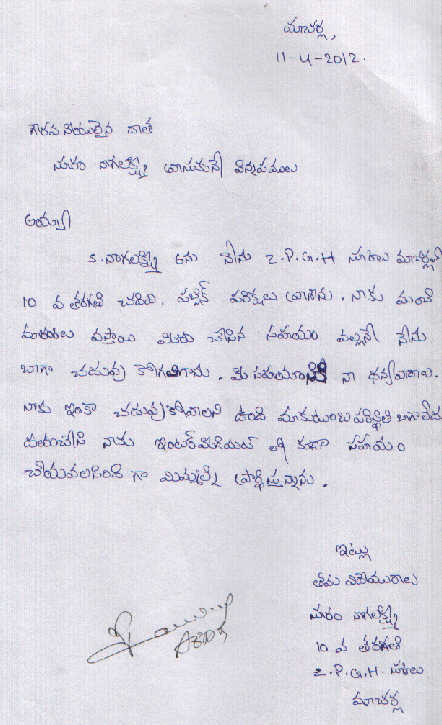 మాచర్ల,
11-4-2012.
గౌరవనీయులైన దాత
మరం నాగలక్ష్మి వ్రాసుకునే విన్నపములు
అయ్యా
నాగలక్ష్మి అను నేను Z.P.G.H స్కూలు మాచర్లలో
10 వ తరగతి చదివి, పబ్లిక్ పరీక్షలు వ్రాశాను. నాకు మంచి
మార్కులు వస్తాయి మీరు చేసిన సహాయం వల్లనే నేను
బాగా చదువు కోగలిగాను. మీ సహయానికి నా ధన్యవాదాలు.
నాకు ఇంకా చదువుకోవాలని ఉంది మాకుటుంబ పరిస్థితి బాగాలేదు
దయచేసి నాకు ఇంటర్మీడియట్ కి కూడా సహాయం
చేయవలసింది గా మిమ్మల్ని ప్రార్థిస్తున్నాను.
ఇట్లు
తమ విధేయురాలు
మరం నాగలక్ష్మి
10 వ తరగతి
Z.P.G.H స్కూలు
మాచర్ల